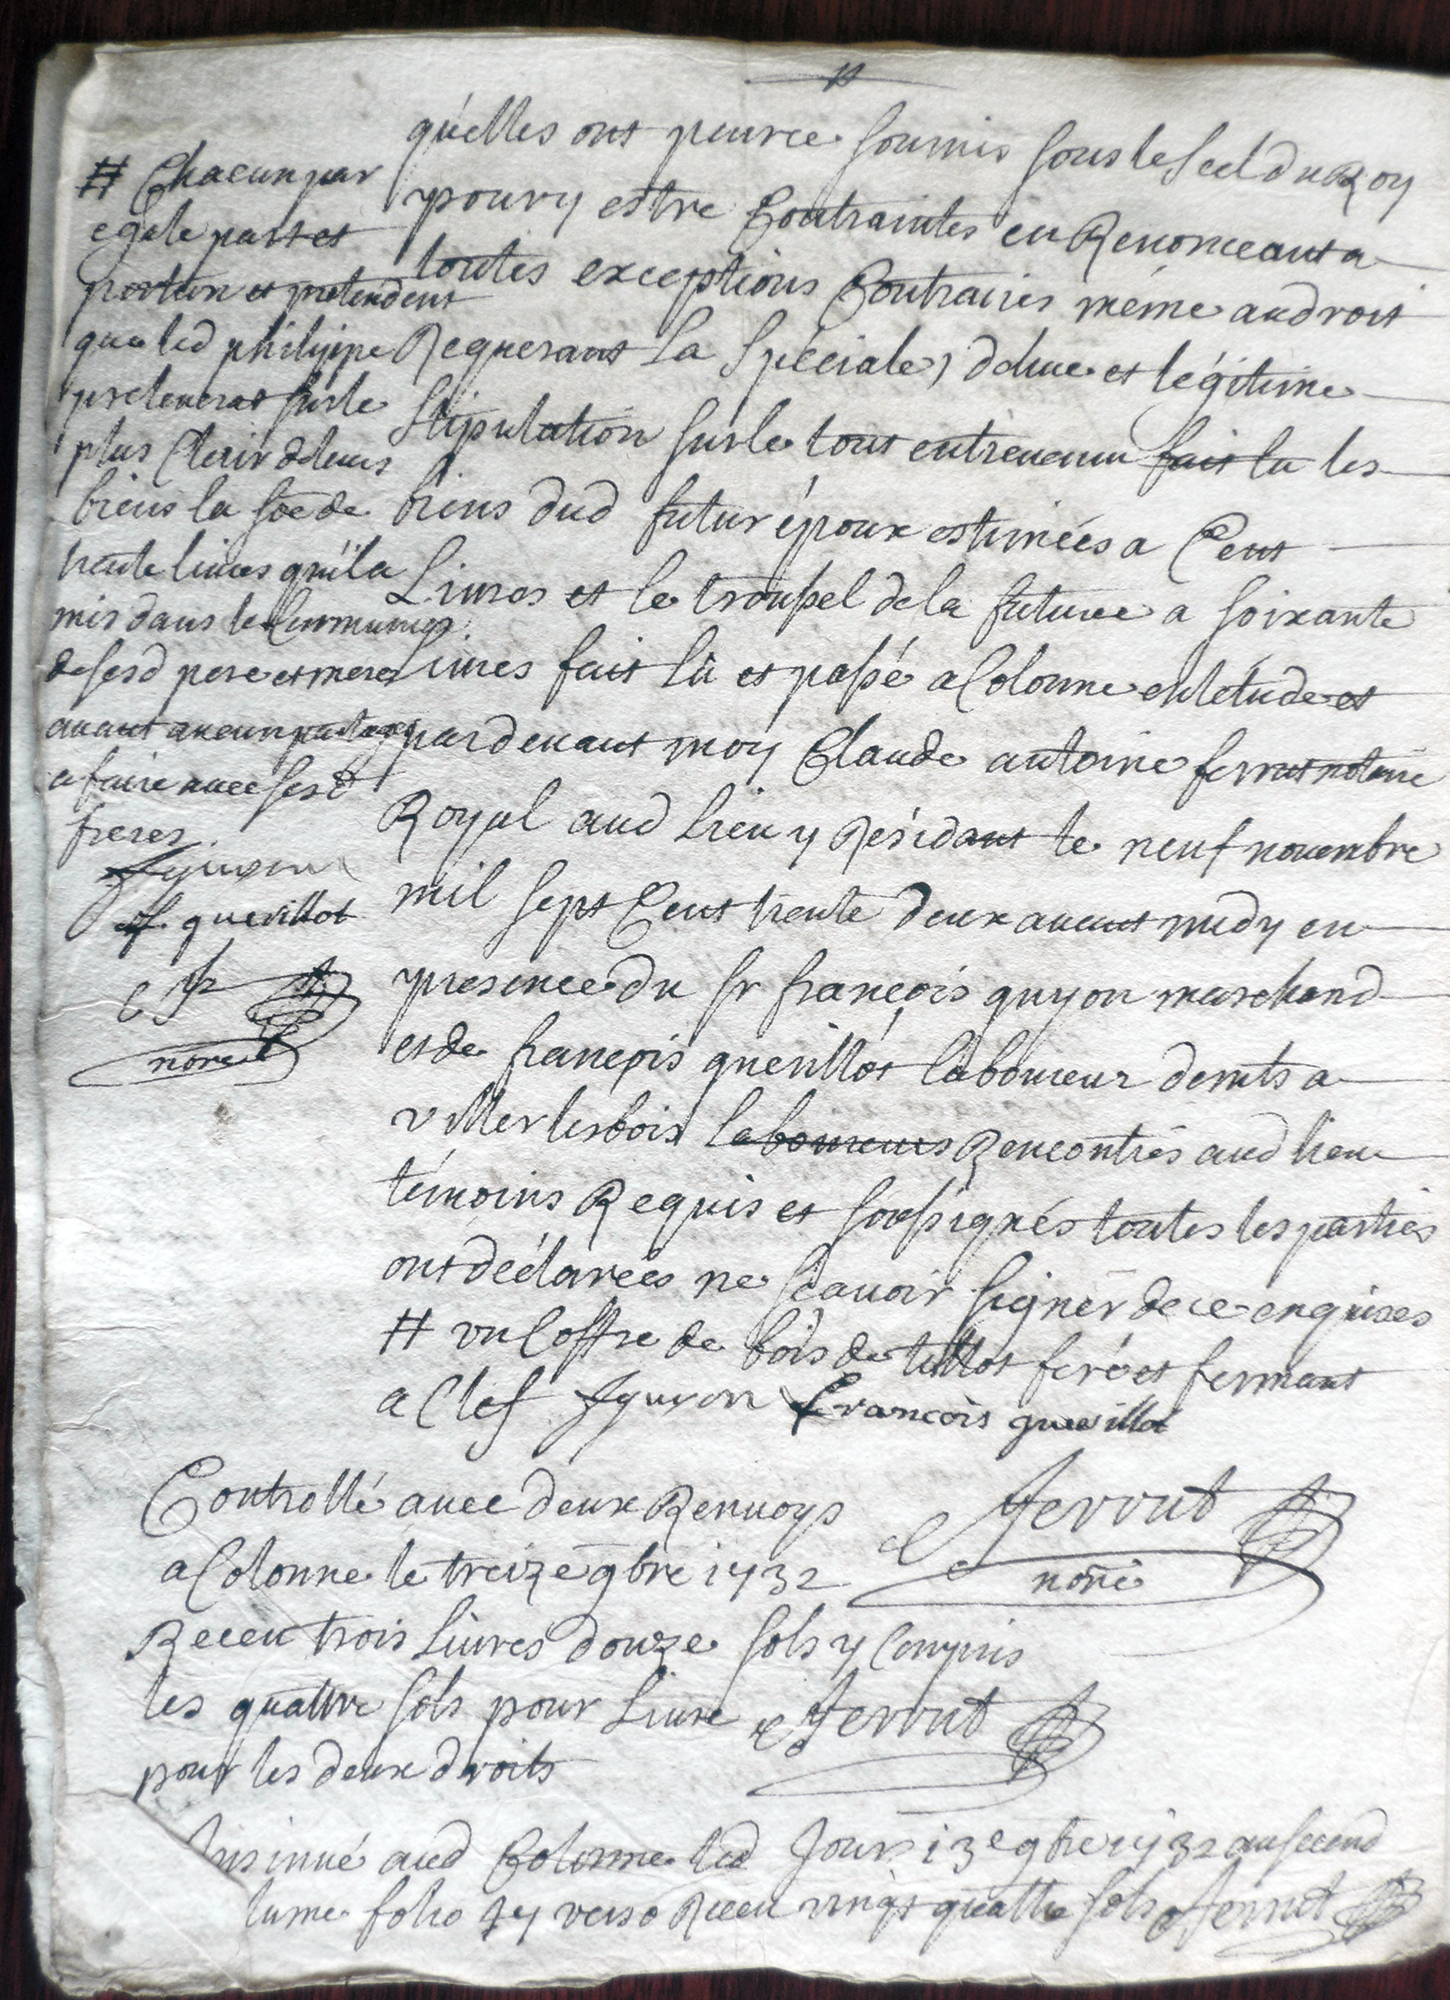 quélles ont pource soumis sous le seel du Roy
pour y estre Contraintes en Renonceant a
toutes exceptions Contraires méme au droit
Requerant la Spéciale, deheue et légitime
stipulation sur le tout entrevenun fait lu les
biens dud futur époux estimées a Cent
Livres et le troussel de la future a soixante
Livres fait lû et passé a Colonne en létude et
pardevant moy Claude antoine ferrut notaire
Royal aud Lieu y Résidant le neuf novembre
mil sept Cent trente deux avant midy en
presence du sr françois guyon marchand
et de françois guerillot laboureur demts a
villerlesbois laboureurs Rencontrés aud lieu
témoins Requis et soussignés toutes les parties
ont déclarées ne sçavoir signér de ce enquises
# un Coffre de bois de tillot feré et fermant
a Clef fguyon françois guerillot
# Chacun par
egale part et
portion et pretendent
que led philippe
prelevera sur le
plus Clair de leurs
biens la soe de
trente livres qu'il a
mis dans le Communion
de sesd pere et mere
avant aucun partage
a faire avec sesd
freres
fguyon
f. guerillot
nore
Controllé avec deux Renvoys
a Colonne le treize 9bre 1732
Receu trois livres douze sols y Compris
les quattre sols pour Livre ferrut
pour les deux droits
ferrut
nore
insinué aud Colonne led Jour 13e 9bre 1732 au second
lume folio 74 verso Receu vingt quattre sols ferrut